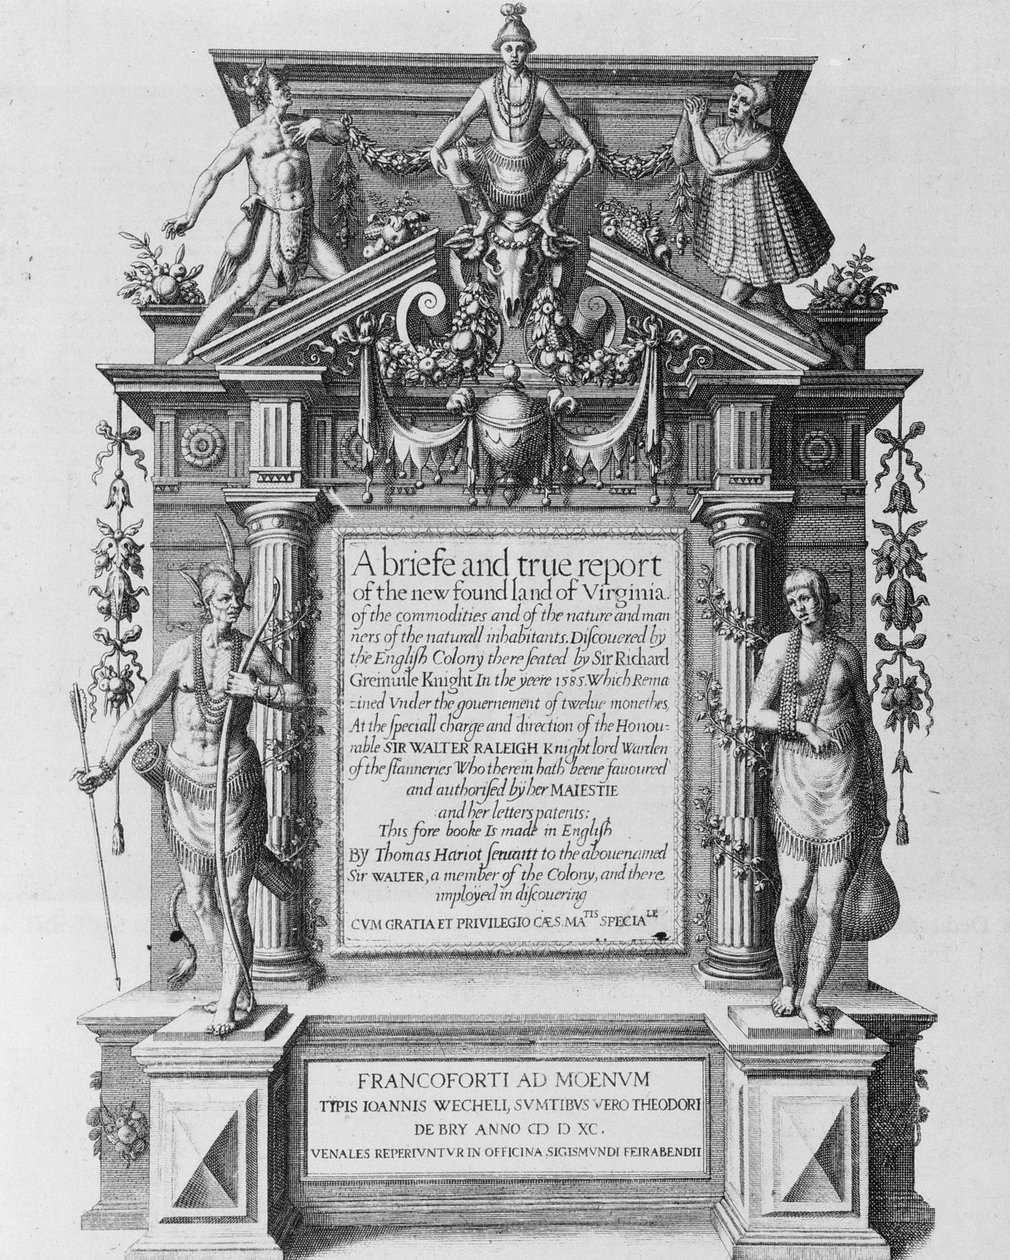 A briefe and true report
of the new found land of Virginia.
of the commodities and of the nature and man
ners of the naturall inhabitants. Diſcouered by
the Engliſh Colony there ſeated by Sir Richard
Greinuile Knight In the yeere 1585. Which Rema
ined Vnder the gouernement of twelue monethes,
At the ſpeciall charge and direction of the Honou-
rable SIR WALTER RALEIGH Knight lord Warden
of the ſtanneries Who therein hath beene fauoured
and authoriſed by her MAIESTIE
and her letters patents:
This fore booke Is made in Engliſh
By Thomas Hariot ſeruant to the abouenamed
Sir WALTER, a member of the Colony, and there
imployed in diſcouering
CVM GRATIA ET PRIVILEGIO CÆS. MATIS SPECIALE
FRANCOFORTI AD MOENVM
TYPIS IOANNIS WECHELI, SVMTIBVS VERO THEODORI
DE BRY ANNO CIↃ IↃ XC.
VENALES REPERIVNTVR IN OFFICINA SIGISMVNDI FEIRABENDII